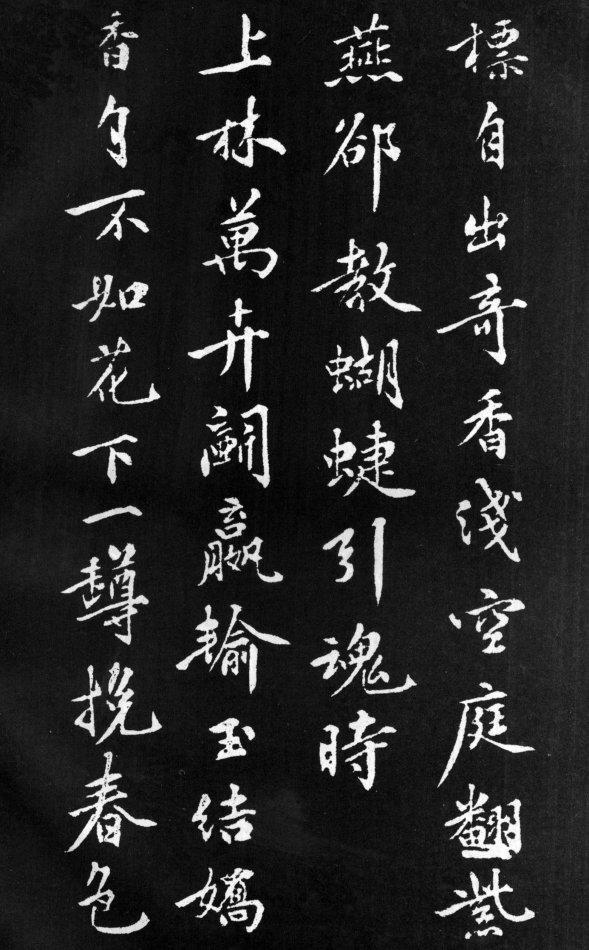 標自出奇香浅空庭翻紫
燕郤教蝴蜨引魂時
上林萬卉鬭贏輸玉結嬌
香自不如花下一罇挽春色